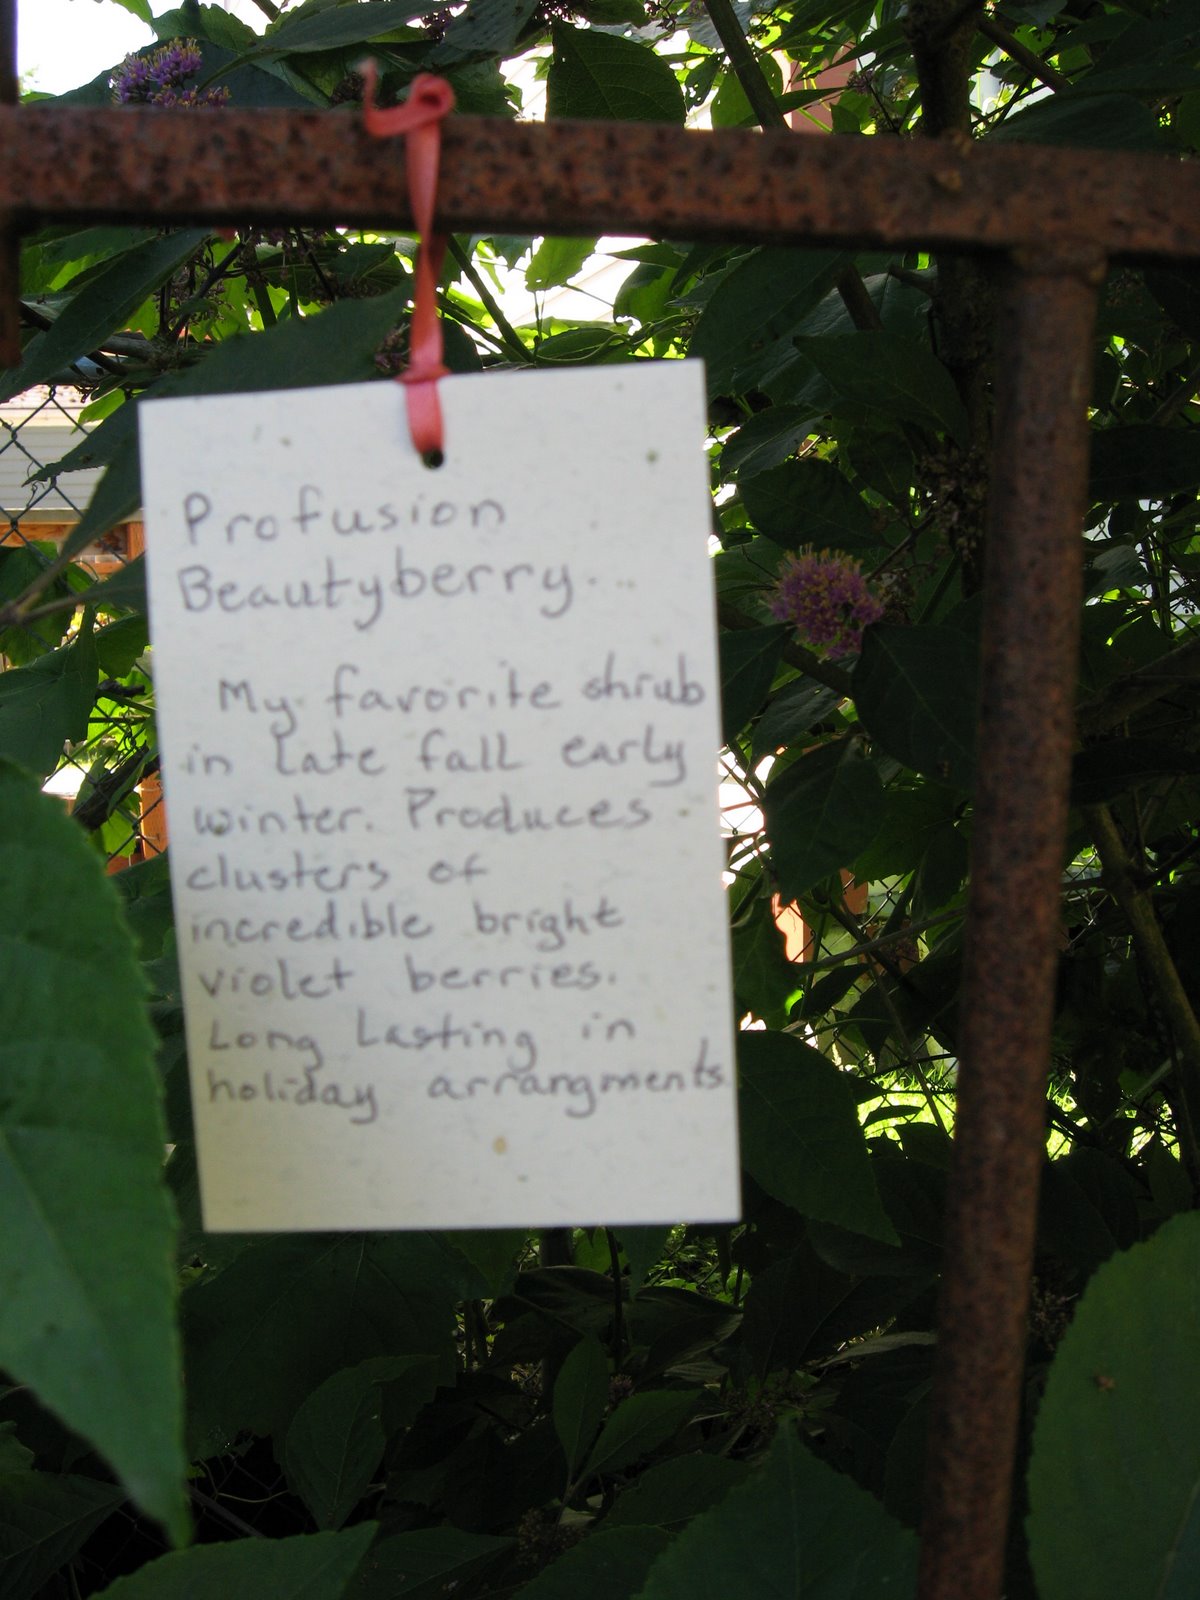 Profusion
Beautyberry...
My favorite shrub
in late fall early
winter. Produces
clusters of
incredible bright
violet berries.
Long Lasting in
holiday arrangments.